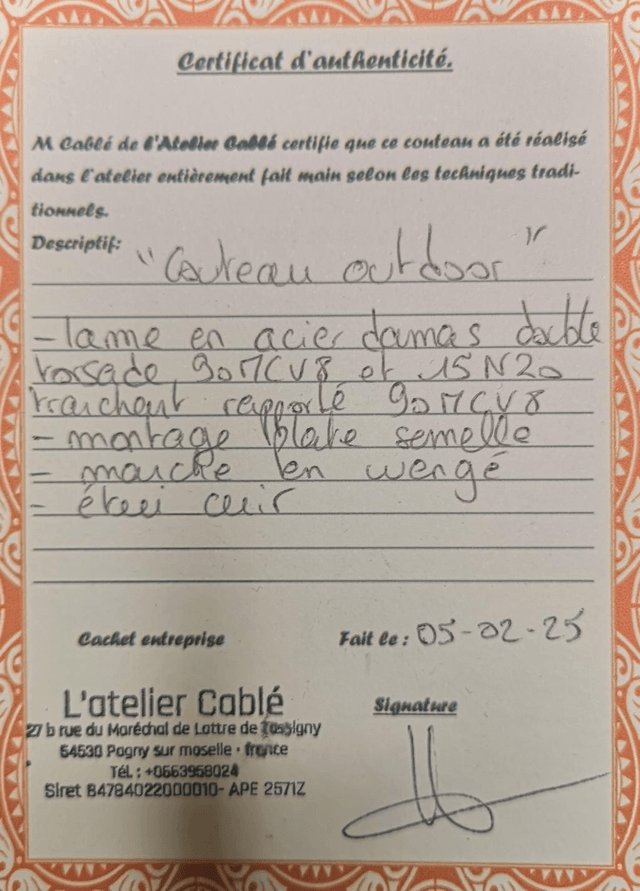 Certificat d'authenticité.
M Cablé de l'Atelier Cablé certifie que ce couteau a été réalisé
dans l'atelier entièrement fait main selon les techniques tradi-
tionnels.
Descriptif:
"Couteau outdoor"
- lame en acier damas double
torsade, 90MCV8 et 15N20
tranchant rapporté 90MCV8
- montage plate semelle
- manche en wengé
- étui cuir
Cachet entreprise
Fait le : 05-02-25
L'atelier Cablé
27 b rue du Maréchal de Lattre de Tassigny
54530 Pagny sur moselle - france
Tél. : +0663958024
Siret 84784022000010- APE 2571Z
Signature